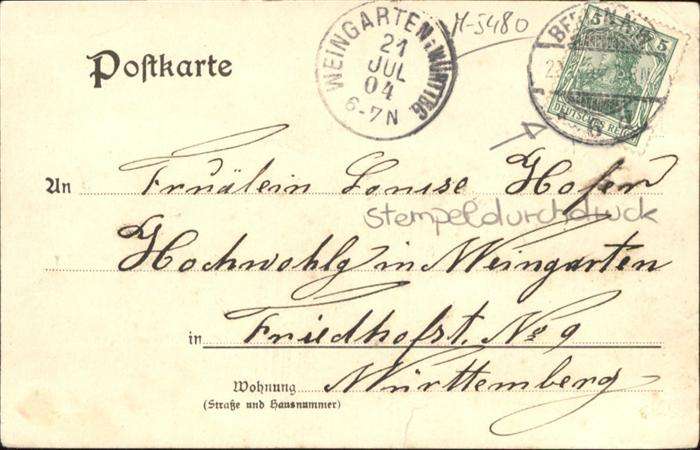 Postkarte
WEINGARTEN (WÜRTTBG.
21
JUL
04
6-7N
M-5480
5 5
DEUTSCHES REICH
An Fräulein Louise Hofer
Stempeldurchdruck
Hochwohlg in Weingarten
in Friedhofst. No 9
Wohnung Württemberg
(Straße und Hausnummer)